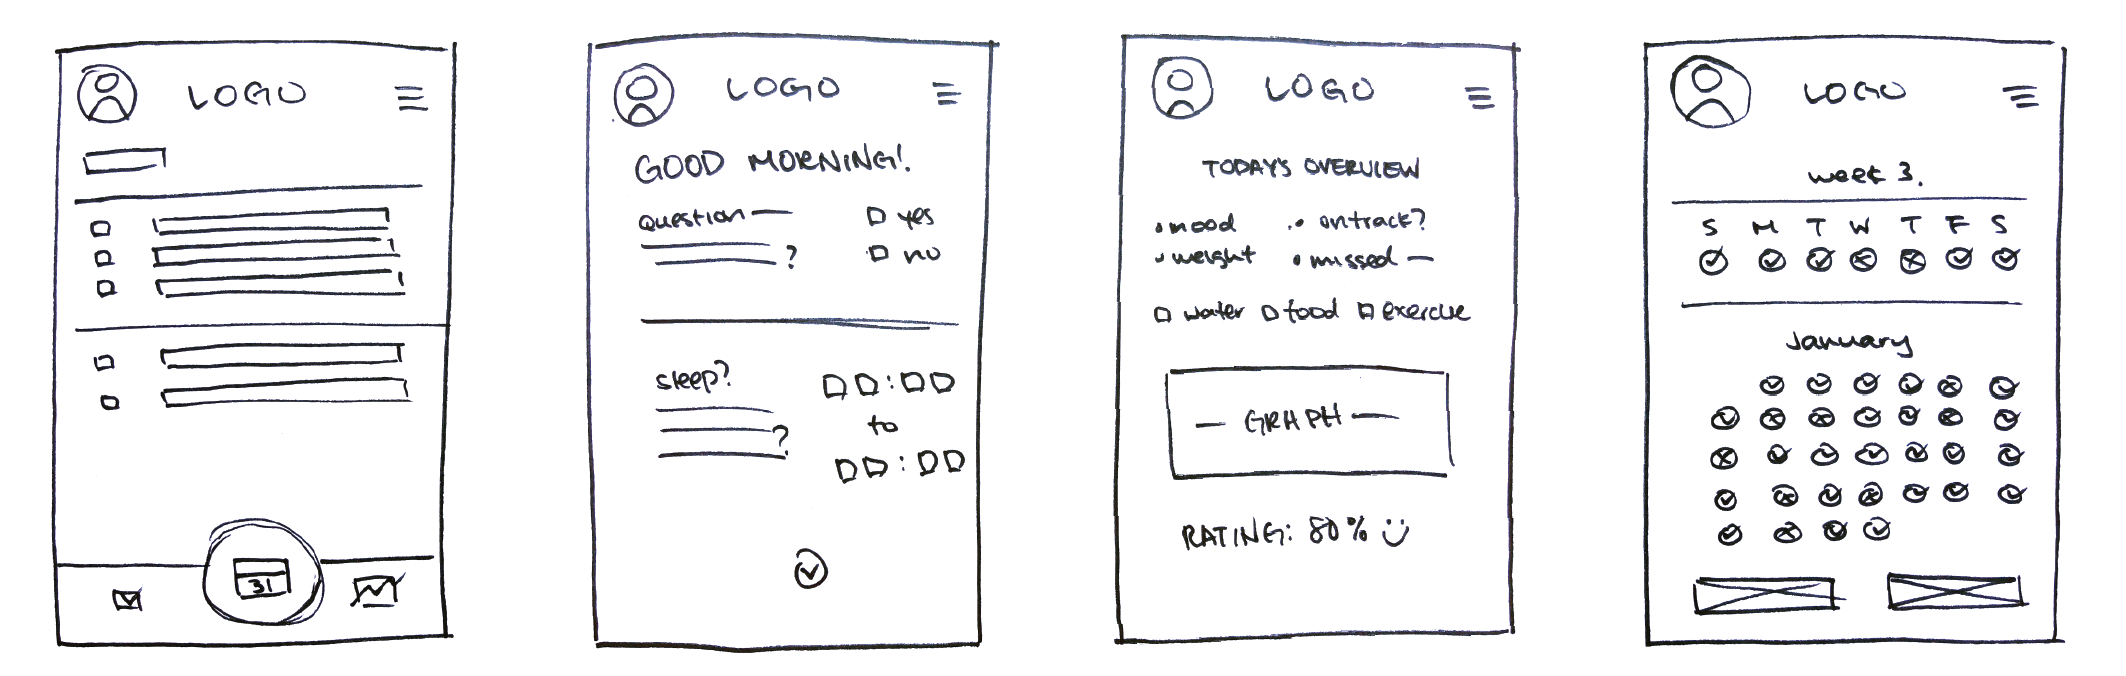 LOGO
31
LOGO
GOOD MORNING!
question
yes
?
no
sleep?
:
to
?
:
LOGO
TODAY'S OVERVIEW
• mood • ontrack?
• weight • missed —
water food exercise
— GRAPH —
RATING: 80%
LOGO
week 3.
S M T W T F S
January